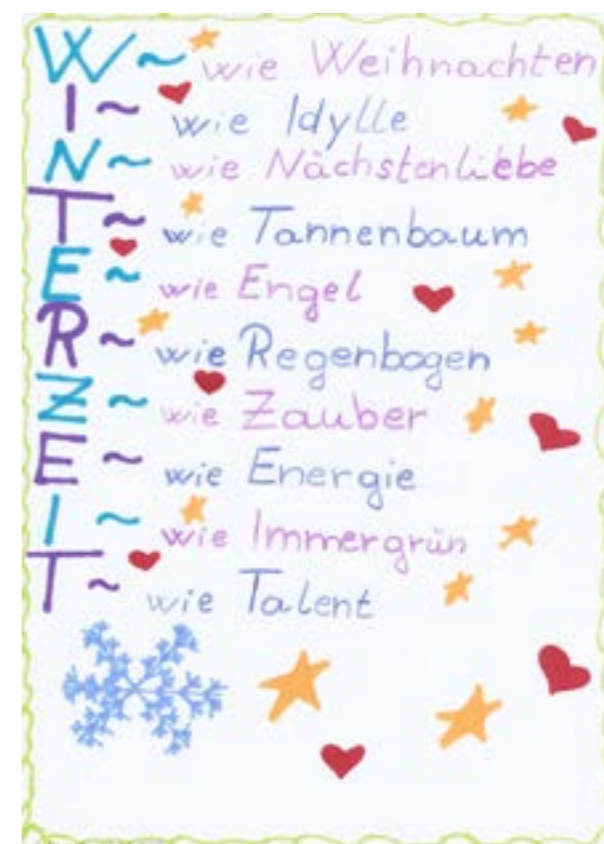 W~ wie Weihnachten
I~ wie Idylle
N~ wie Nächstenliebe
T~ wie Tannenbaum
E~ wie Engel
R~ wie Regenbogen
Z~ wie Zauber
E~ wie Energie
I~ wie Immergrün
T~ wie Talent